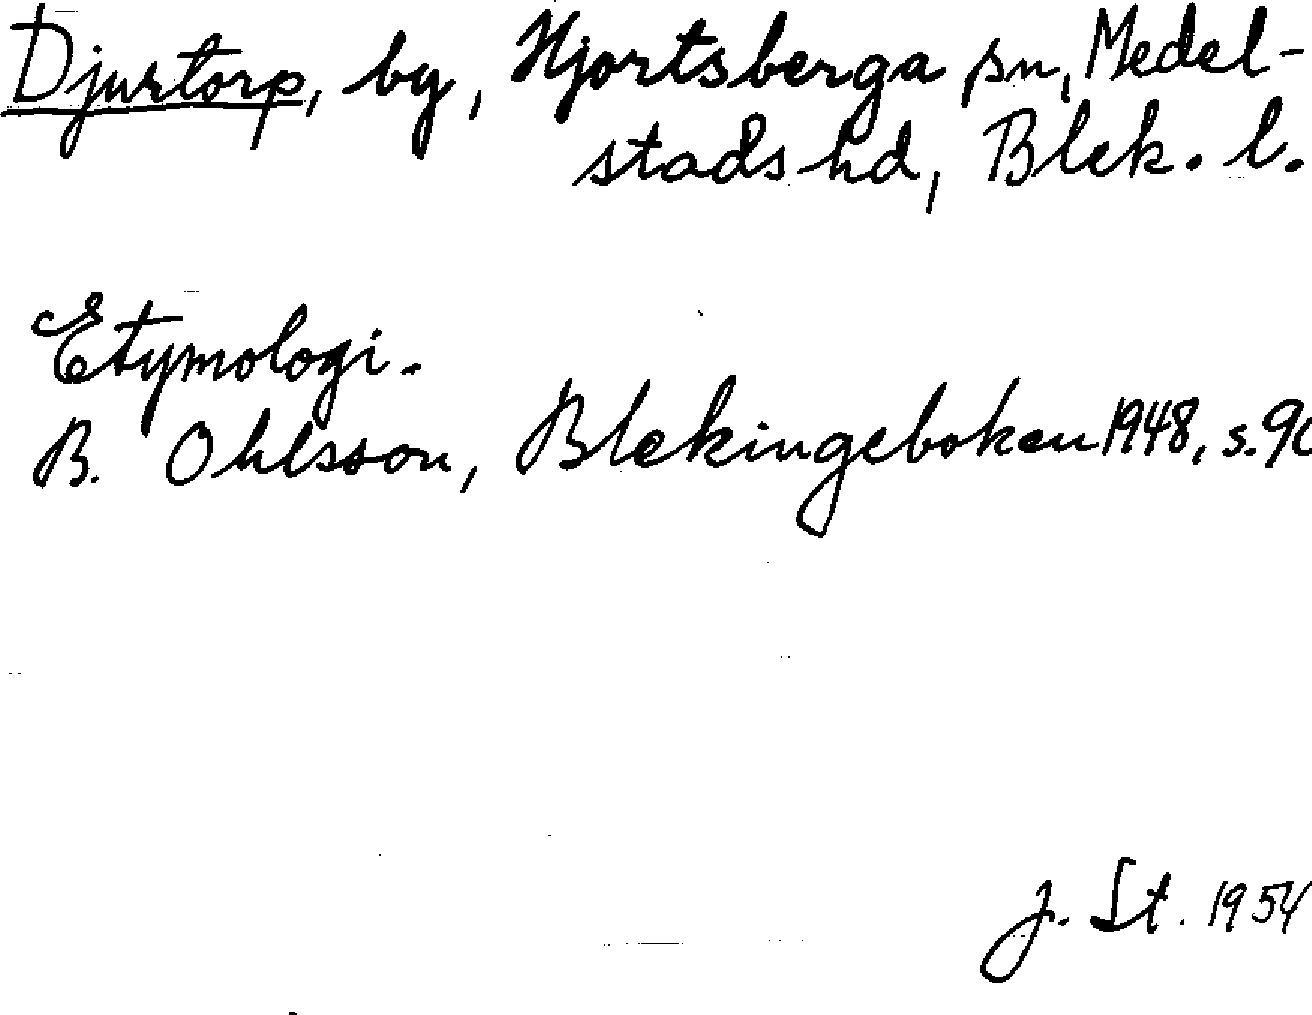 Djurtorp, by, Hjortsberga sn, Medel-
stads hd, Blek. l.
Etymologi.
B. Ohlsson, Blekingeboken 1948, s.
J. St. 1954